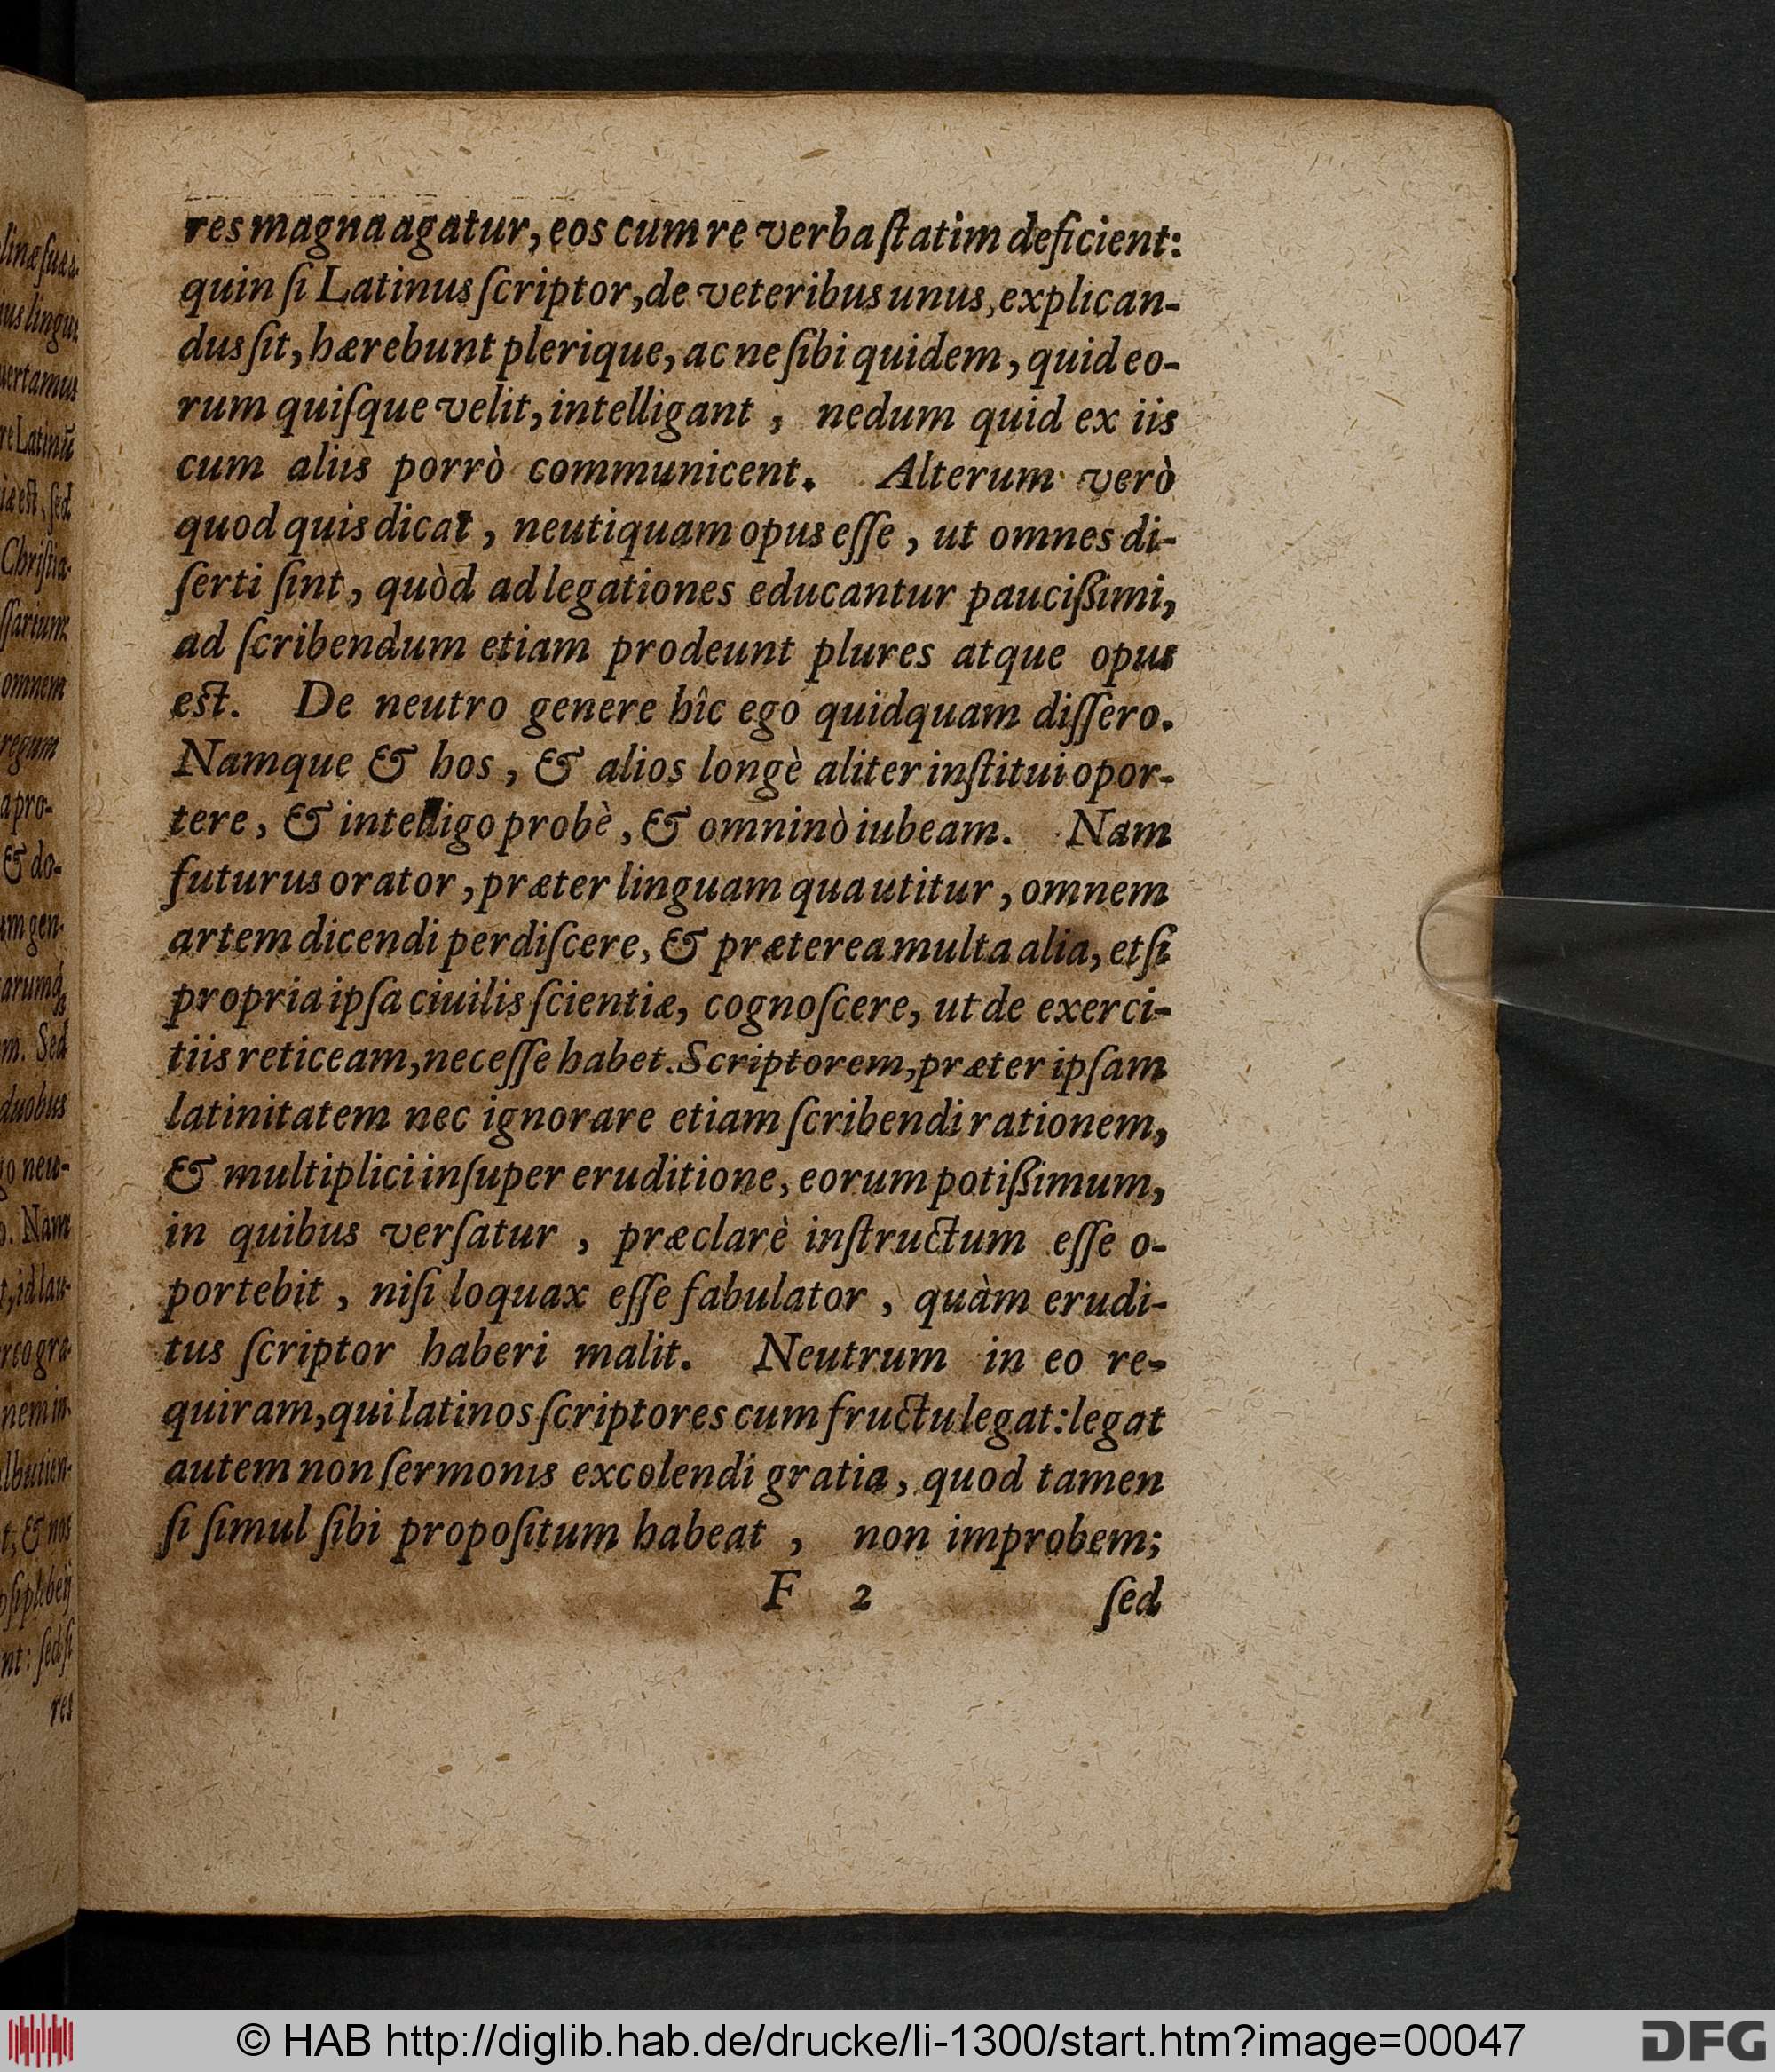 res magna agatur, eos cum re verba ſtatim deficient:
quin ſi Latinus ſcriptor, de veteribus unus, explican-
dus ſit, hærebunt plerique, ac ne ſibi quidem, quid eo-
rum quiſque velit, intelligant, nedum quid ex iis
cum aliis porrò communicent. Alterum verò
quod quis dicat, neutiquam opus eſſe, ut omnes di-
ſerti ſint, quòd ad legationes educantur pauciſsimi,
ad ſcribendum etiam prodeunt plures atque opus
eſt. De neutro genere hîc ego quidquam diſſero.
Namque & hos, & alios longè aliter inſtitui opor-
tere, & intelligo probè, & omninò iubeam. Nam
futurus orator, præter linguam qua utitur, omnem
artem dicendi perdiſcere, & præterea multa alia, etſi
propria ipſa ciuilis ſcientiæ, cognoſcere, ut de exerci-
tiis reticeam, neceſſe habet. Scriptorem, præter ipſam
latinitatem nec ignorare etiam ſcribendi rationem,
& multiplici inſuper eruditione, eorum potiſsimum,
in quibus verſatur, præclarè inſtructum eſſe o-
portebit, niſi loquax eſſe fabulator, quàm erudi-
tus ſcriptor haberi malit. Neutrum in eo re-
quiram, qui latinos ſcriptores cum fructu legat: legat
autem non ſermonis excolendi gratia, quod tamen
ſi ſimul ſibi propoſitum habeat, non improbem;
F 2 ſed
© HAB http://diglib.hab.de/drucke/li-1300/start.htm?image=00047
DFG